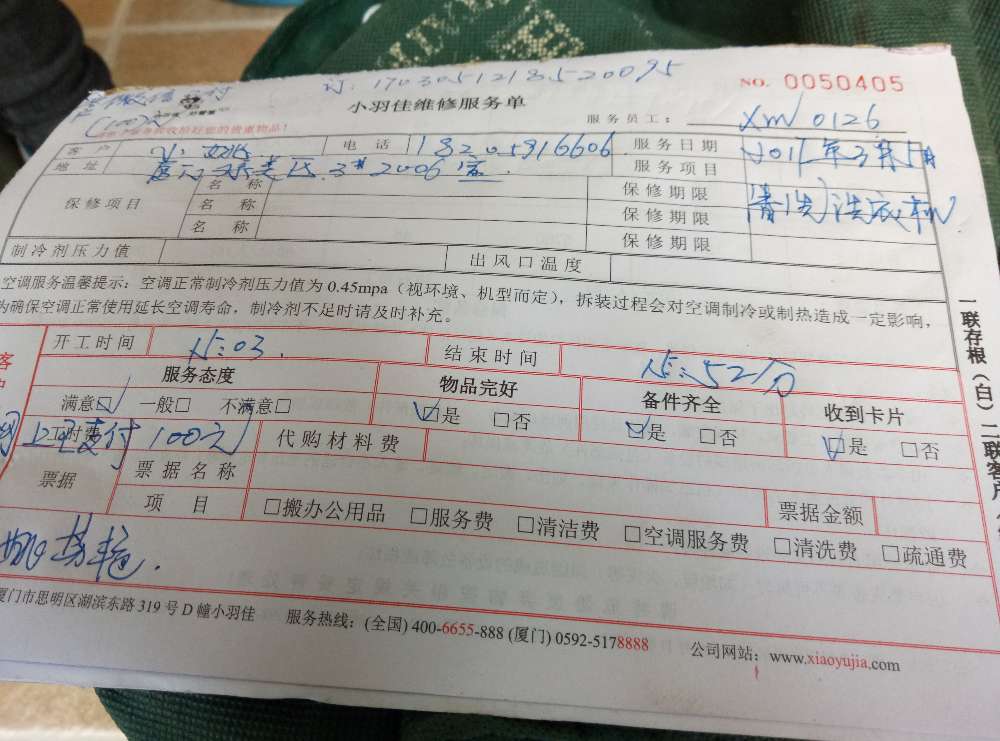 订:17030512183520095
NO. 0050405
(100元)
小羽佳维修服务单
服务员工: xm 0126
客户 电话 18205916606 服务日期 2017年3月5日
地址 3# 2006室 服务项目 清洗洗衣机
保修项目 名称 保修期限
名称 保修期限
名称 保修期限
制冷剂压力值 出风口温度
空调服务温馨提示:空调正常制冷剂压力值为 0.45mpa(视环境、机型而定),拆装过程会对空调制冷或制热造成一定影响,
为确保空调正常使用延长空调寿命,制冷剂不足时请及时补充。
开工时间 15:03. 结束时间 15:52分
服务态度 物品完好 备件齐全 收到卡片
满意☑ 一般□ 不满意□ ☑是 □否 ☑是 □否 ☑是 □否
工时费 网上已支付100元 代购材料费
票据 票据名称 票据金额
项目 □搬办公用品 □服务费 □清洁费 □空调服务费 □清洗费 □疏通费
厦门市思明区湖滨东路 319 号 D 幢小羽佳 服务热线:(全国) 400-6655-888 (厦门) 0592-5178888 公司网站:www.xiaoyujia.com
一联存根(白)二联客户